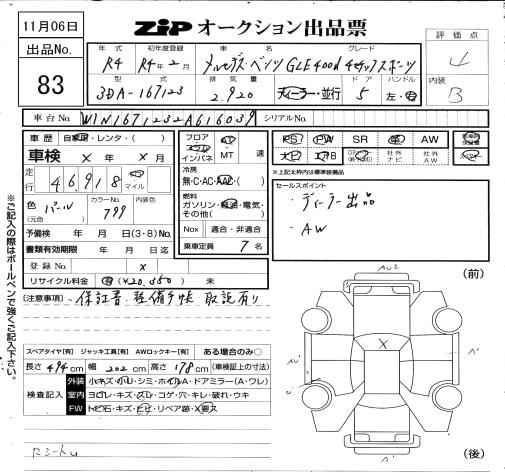 11月06日
ZIPオークション出品票
出品No.
83
年式
初年度登録
車名
グレード
R4
R4年2月
メルセデス・ベンツ GLE400d 4マチックスポーツ
型式
排気量
ドア
ハンドル
3DA-167123
2.920
ディーラー・並行
5
左・右
評価点
4
内装
B
車台No.
W1N1671232A616039
シリアルNo.
車歴
自家用・レンタ・( )
車検
×年×月
走行
46,918
マイル
色(元色)
パール
カラーNo.
799
内装色
予備検 年 月 日(3・8)No.
書類有効期限 年 月 日迄
登録No.
×
リサイクル料金
有(¥20,550) 未
フロア
コラム
インパネ
AT
MT
速
冷房
無・C・AC・AAC・( )
燃料
ガソリン・軽油・電気・その他( )
Nox
適合・非適合
乗車定員
7名
PS
PW
SR
革
AW
ナビ
TV
社外ナビ
社外AW
※上記太枠内は標準装備品
セールスポイント
・ディーラー出品
・AW
※ご記入の際はボールペンで強くご記入下さい。
(注意事項)
・保証書・整備手帳 取説有り
(前)
AU2
AU1
X
A1
A1
(後)
スペアタイヤ[有]
ジャッキ工具[有]
AWロックキー[有]
ある場合のみ○
長さ494cm
幅202cm
高さ178cm
(車検証上の寸法)
検査記入
外装
小キズ・小U・シミ・ホイルA・ドアミラー(A・ワレ)
室内
ヨゴレ・キズ・スレ・コゲ・穴・キレ・破れ・ウキ
FW
トビ石・キズ・ヒビ・リペア跡・X要交